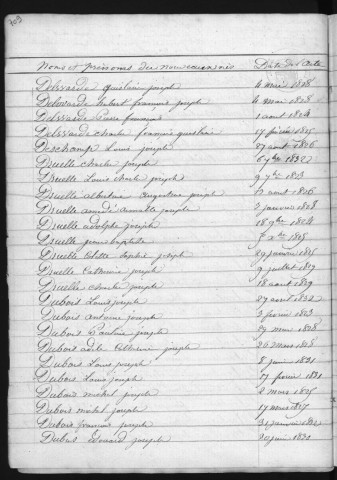 Noms et prénoms du nouveaux nés Date de l'acte
Delvarde Guislain joseph 4 mai 1818
Delvarde hubert francois joseph 4 mai 1808
Delvarde francoise 1 aout 1824
Delvarde Charles françois guislain 17 février 1815
Deschamp Louis joseph 27 aout 1806
Druelle Charles joseph 6 7bre 1832
Druelle Louis Charles joseph 9 7bre 1813
Druelle albertine augustine joseph 12 aout 1806
Druelle aimable joseph 3 janvier 1808
Druelle adolphe joseph 18 9bre 1824
Druelle jean baptiste 7 Xbre 1805
Druelle sophie joseph 29 janvier 1815
Druelle Catherine joseph 9 juillet 1807
Druelle Charles joseph 18 aout 1829
Dubois Louis joseph 27 aout 1832
Dubois antoine joseph 3 février 1813
Dubois Pauline joseph 29 mai 1808
Dubois Catherine joseph 26 mars 1808
Dubois Louis joseph 8 juin 1831
Dubois Louis joseph février 1831
Dubois michel joseph 2 mars 1815
Dubois michel joseph 17 mars 1827
Dubois francois joseph 31 janvier
Dubois Edouard joseph 20 juin 1830